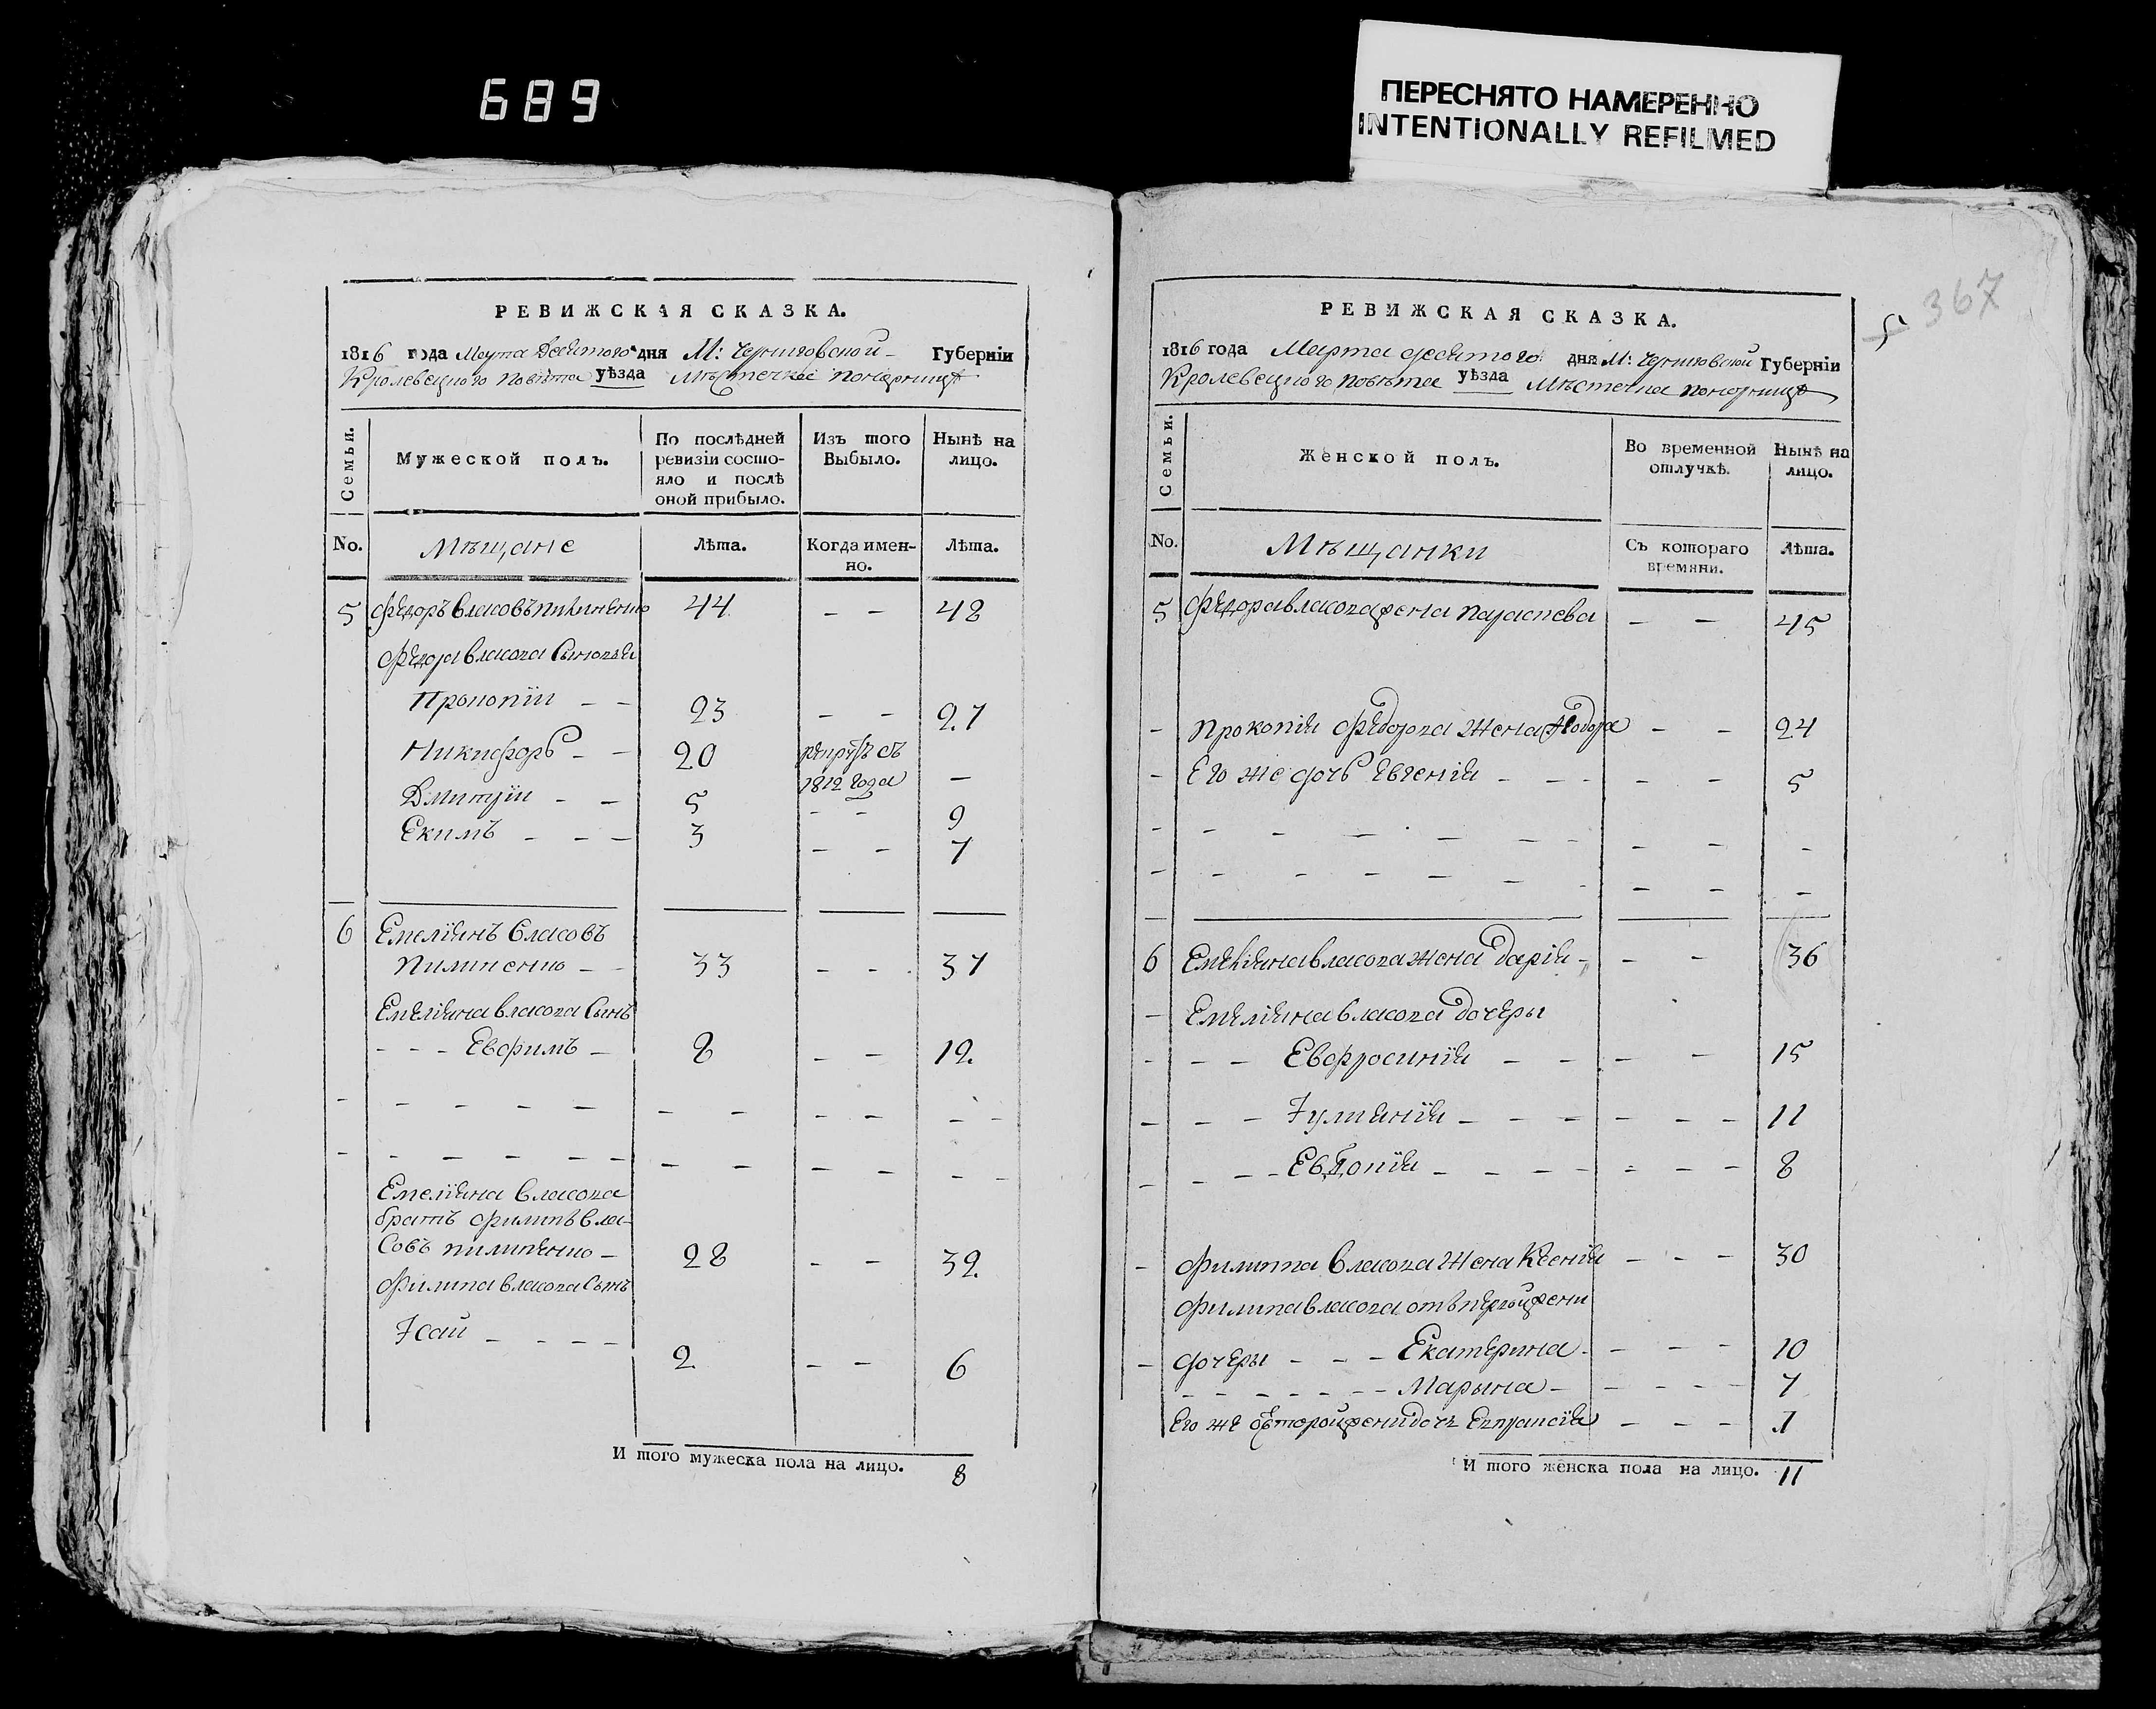 689
ПЕРЕСНЯТО НАМЕРЕННО
INTENTIONALLY REFILMED
367
5
РЕВИЖСКАЯ СКАЗКА.
1816 года Марта Десятого дня М: Черниговской Губерніи
Кролевецкого Повѣта уѣзда Мѣстечка Понорници
Семьи.
Мужеской полъ.
По послѣдней ревизіи состояло и послѣ оной прибыло.
Изъ того Выбыло.
Нынѣ на лицо.
No.
Мѣщане
Лѣта.
Когда именно.
Лѣта.
5 Федоръ Власовъ Пилипенко 44 - - 48
Федора Власова Сыновья
Прокопій - - 23 - - 27
Никифоръ - - 20 рекрутъ съ 1812 года -
Дмитрій - - 5 - - 9
Екимъ - - - 3 - - 7
6 Емеліянъ Власовъ
Пилипенко - - 33 - - 37
Емеліяна Власова Сынъ
- - - Евфимъ - 8 - - 12.
Емеліяна Власова
братъ Филипъ Вла-
совъ Пилипенко - 28 - - 32.
Филипа Власова Сынъ
Ісай - - - - 2 - - 6
И того мужеска пола на лицо. 8
РЕВИЖСКАЯ СКАЗКА.
1816 года Марта десятого дня М: Черниговской Губерніи
Кролевецкого Повѣта уѣзда Мѣстечка Понорници
Семьи.
Женской полъ.
Во временной отлучкѣ.
Нынѣ на лицо.
No.
Мѣщанки
Съ котораго времяни.
Лѣта.
5 Федора Власова жена - - 45
- Прокопія Федорова жена - - 24
- Его же дочь Евгенія - - - - - 5
6 Емеліяна Власова жена Дарія - - - 36
- Емеліяна Власова дочеры
- - - Евфросинія - - - - 15
- - - Іулиянія - - - - - - 11
- - - - Евдокія - - - - - - - 8
- Филиппа Власова Жена Ксенія - - - 30
Филипа Власова отъ первой жени
- дочеры - - - Екатерина - - - - 10
- - - - - - - Марына - - - - - 7
Его же отъ второй жени дочь - - - 1
И того женска пола на лицо. 11